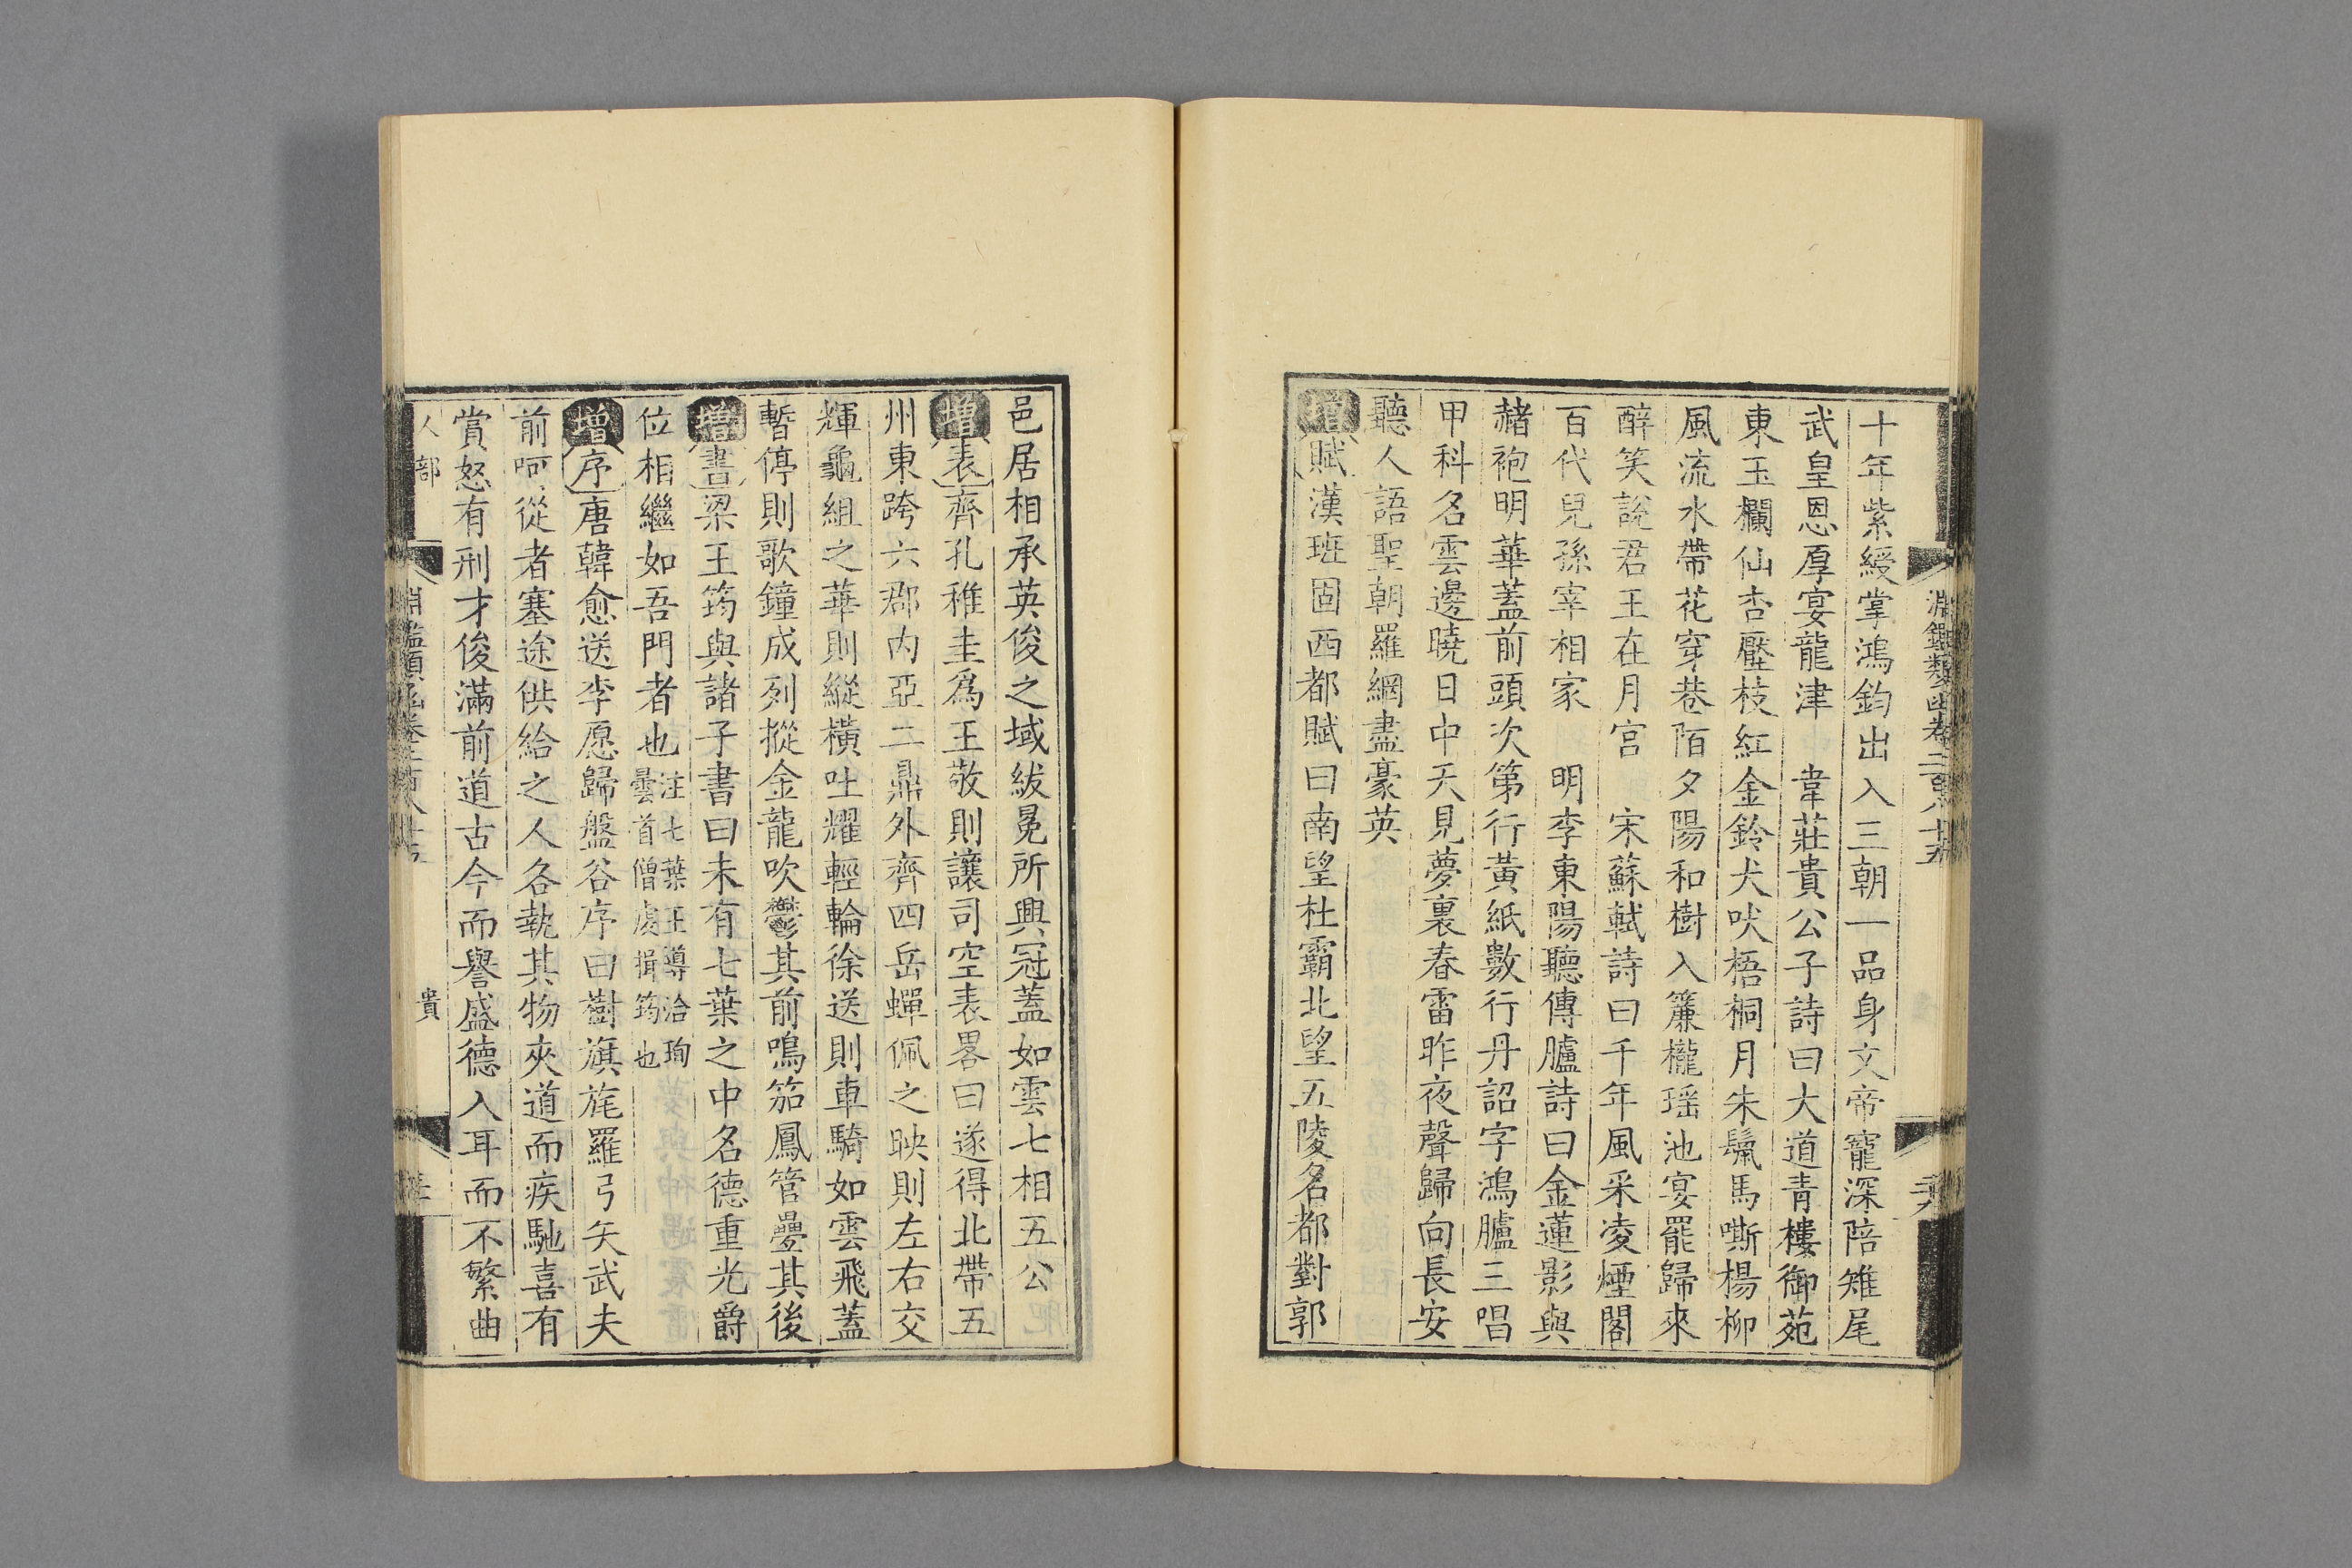 淵鑑類函卷二百八十五
十年紫綬掌鴻鈞出入三朝一品身文帝寵深陪雉尾
武皇恩厚宴龍津　韋莊貴公子詩曰大道青樓御苑
東玉欄仙杏壓枝紅金鈴犬吠梧桐月朱鬣馬嘶楊柳
風流水帶花穿巷陌夕陽和樹入簾櫳瑶池宴罷歸來
醉笑說君王在月宫　宋蘇軾詩曰千年風采凌煙閣
百代兒孫宰相家　明李東陽聽傳臚詩曰金蓮影與
赭袍明華蓋前頭次第行黃紙數行丹詔字鴻臚三唱
甲科名雲邊曉日中天見夢裏春雷昨夜聲歸向長安
聽人語聖朝羅網盡豪英
增賦漢班固西都賦曰南望杜霸北望五陵名都對郭
邑居相承英俊之域紱冕所興冠蓋如雲七相五公
增表齊孔稚圭為王敬則讓司空表畧曰遂得北帶五
州東跨六郡内亞二鼎外齊四岳蟬佩之映則左右交
輝龜組之華則縱橫吐耀輕輪徐送則車騎如雲飛蓋
暫停則歌鐘成列摐金龍吹鬱其前鳴笳鳳管疊其後
增書梁王筠與諸子書曰未有七葉之中名德重光爵
位相繼如吾門者也注七葉王導洽珣曇首僧虔揖筠也
增序唐韓愈送李愿歸盤谷序曰樹旗旄羅弓矢武夫
前呵從者塞途供給之人各執其物夾道而疾馳喜有
賞怒有刑才俊滿前道古今而譽盛德入耳而不繁曲
人部
貴